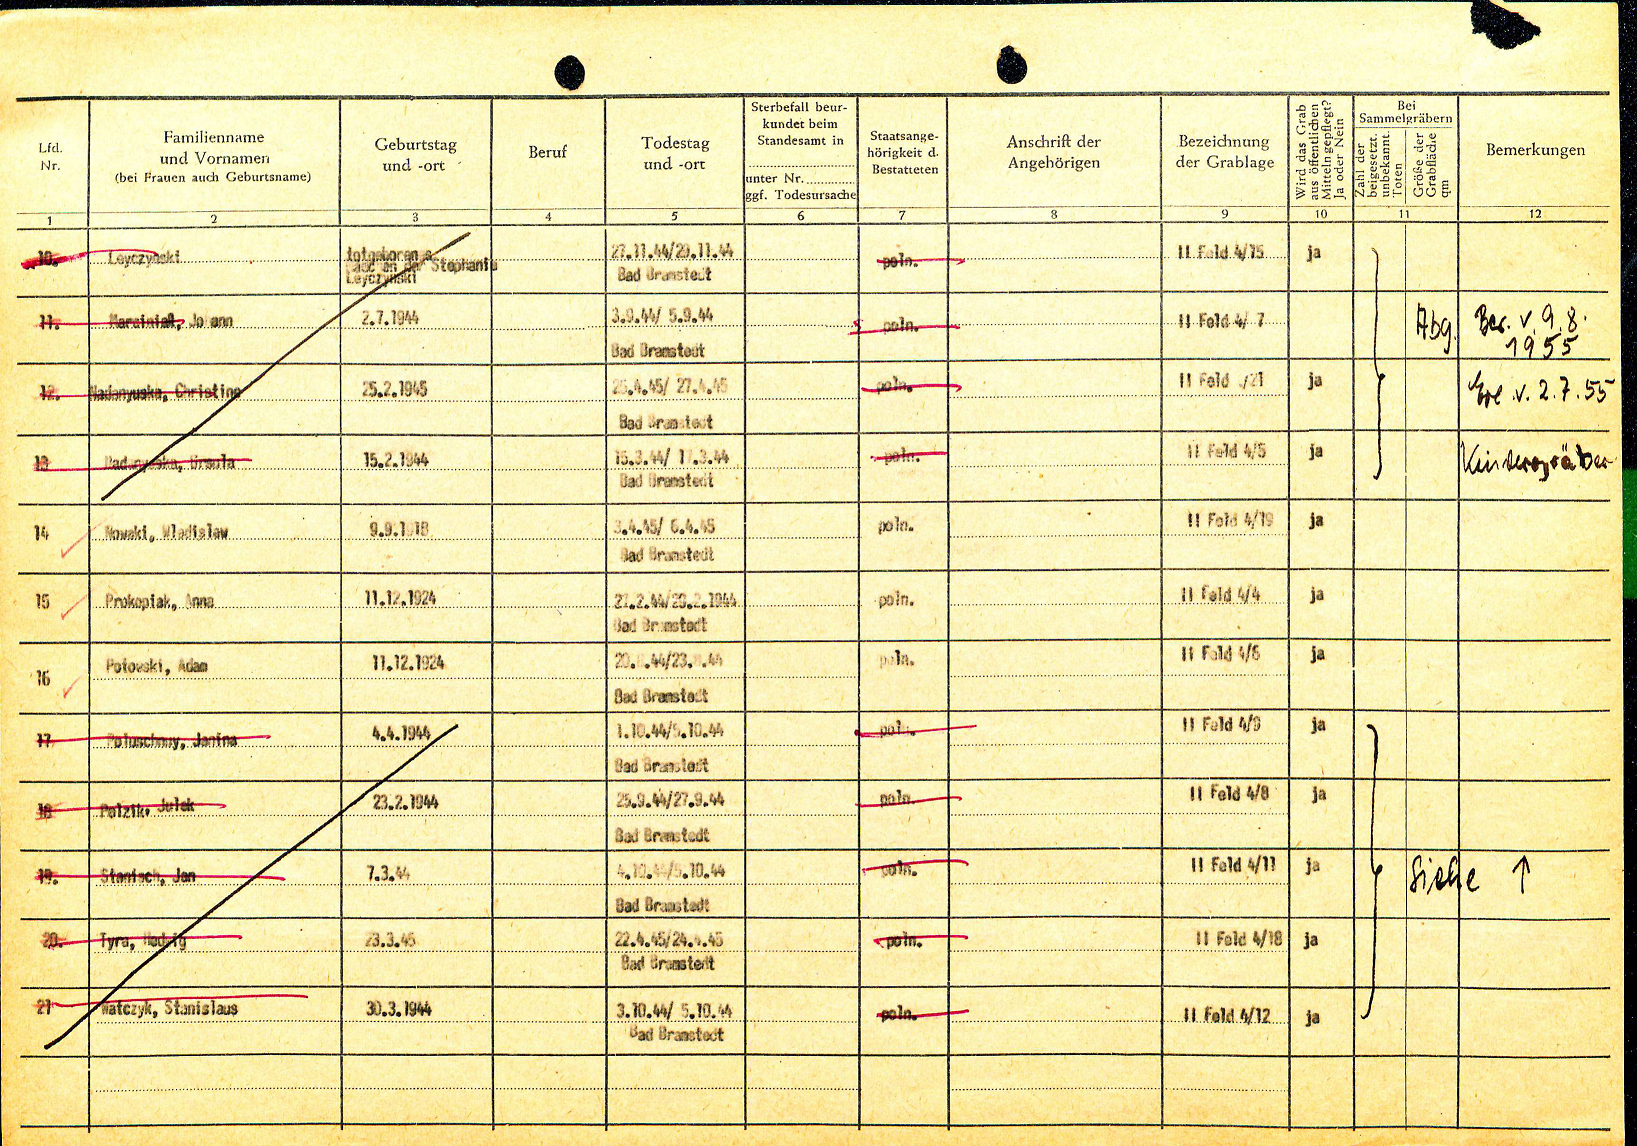 Lfd.
Nr.
Familienname
und Vornamen
(bei Frauen auch Geburtsname)
Geburtstag
und -ort
Beruf
Todestag
und -ort
Sterbefall beur-
kundet beim
Standesamt in
unter Nr.
ggf. Todesursache
Staatsange-
hörigkeit d.
Bestatteten
Anschrift der
Angehörigen
Bezeichnung
der Grablage
Wird das Grab
aus öffentlichen
Mitteln gepflegt?
Ja oder Nein
Bei
Sammelgräbern
Zahl der
beigesetzt.
unbekannt.
Toten
Größe der
Grabfläche
qm
Bemerkungen
1 2 3 4 5 6 7 8 9 10 11 12
10. Leyczynski 27.11.44/29.11.44 poln. II Feld 4/15 ja
Stephanie
Leyczynski Bad Bramstedt
11. Marciniak, Johann 2.7.1944 3.9.44/ 5.9.44 poln. II Feld 4/ 7 Abg. Ber. v. 9.8.
Bad Bramstedt 1955
12. Christine 25.2.1945 25.4.45/ 27.4.45 poln. II Feld /21 ja v. 2.7.55
Bad Bramstedt
13 Ursula 15.2.1944 15.3.44/ 17.3.44 poln. II Feld 4/5 ja Kindergräber
Bad Bramstedt
14 Nowski, Wladislaw 9.9.1918 3.4.45/ 6.4.45 poln. II Feld 4/19 ja
Bad Bramstedt
15 Prokopiak, Anna 11.12.1924 27.2.44/29.2.1944 poln. II Feld 4/4 ja
Bad Bramstedt
16 Potowski, Adam 11.12.1924 poln. II Feld 4/6 ja
Bad Bramstedt
17 Poluschny, Janina 4.4.1944 1.10.44/5.10.44 poln. II Feld 4/9 ja
Bad Bramstedt
18 Polzik, Julek 23.2.1944 25.9.44/27.9.44 poln. II Feld 4/8 ja
Bad Bramstedt
19. Stanisch, Jan 7.3.44 4.10.44/5.10.44 poln. II Feld 4/11 ja Siehe ↑
Bad Bramstedt
20. Tyra, Hedwig 23.3.45 22.4.45/24.4.45 poln. II Feld 4/18 ja
Bad Bramstedt
21 Watczyk, Stanislaus 30.3.1944 3.10.44/ 5.10.44 poln. II Feld 4/12 ja
Bad Bramstedt